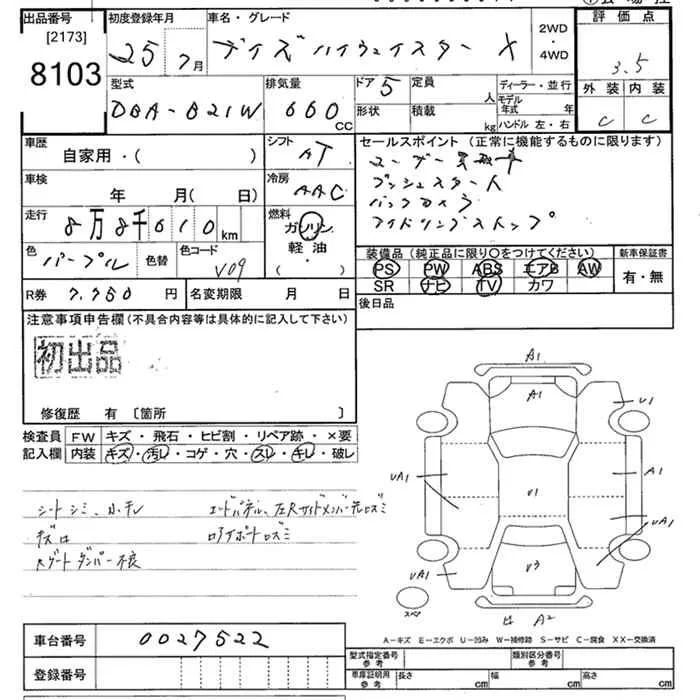 出品番号
[2173]
8103
初度登録年月
25 7月
車名・グレード
デイズ ハイウェイスター X
2WD
・
4WD
評価点
3.5
外装 内装
C C
型式
DBA-B21W
排気量
660
CC
ドア 5
形状
定員
人
積載
kg
ディーラー・並行
モデル
年式 年
ハンドル 左・右
車歴
自家用・( )
シフト
AT
セールスポイント (正常に機能するものに限ります)
プッシュスタート
バックカメラ
アイドリングストップ
車検
年 月( 日)
冷房
AAC
走行
8万8千610 km
燃料
ガソリン
軽油
・( )
色 パープル
色替
色コード
V09
装備品(純正品に限り〇をつけてください)
PS PW ABS エアB AW
SR ナビ TV カワ
新車保証書
有・無
R券 7.750 円
名変期限 月 日
後日品
注意事項申告欄(不具合内容等は具体的に記入して下さい)
初出品
修復歴 有 〔箇所 〕
検査員
記入欄
FW キズ・飛石・ヒビ割・リペア跡・×要
内装 キズ・汚レ・コゲ・穴・スレ・キレ・破レ
シートシミ、
エンドパネル、左Rサイドメンバー先ロズミ
ロアサポートロズミ
Rゲートダンパー不良
A1
A1
U1
UA1
A1
U1
UA1
UA1
U3
スペア
A2
A-キズ E-エクボ U-凹み W-補修跡 S-サビ C-腐食 XX-交換済
車台番号
0027522
登録番号
型式指定番号
参考
類別区分番号
参考
車庫証明用
参考
長さ cm
幅 cm
高さ cm